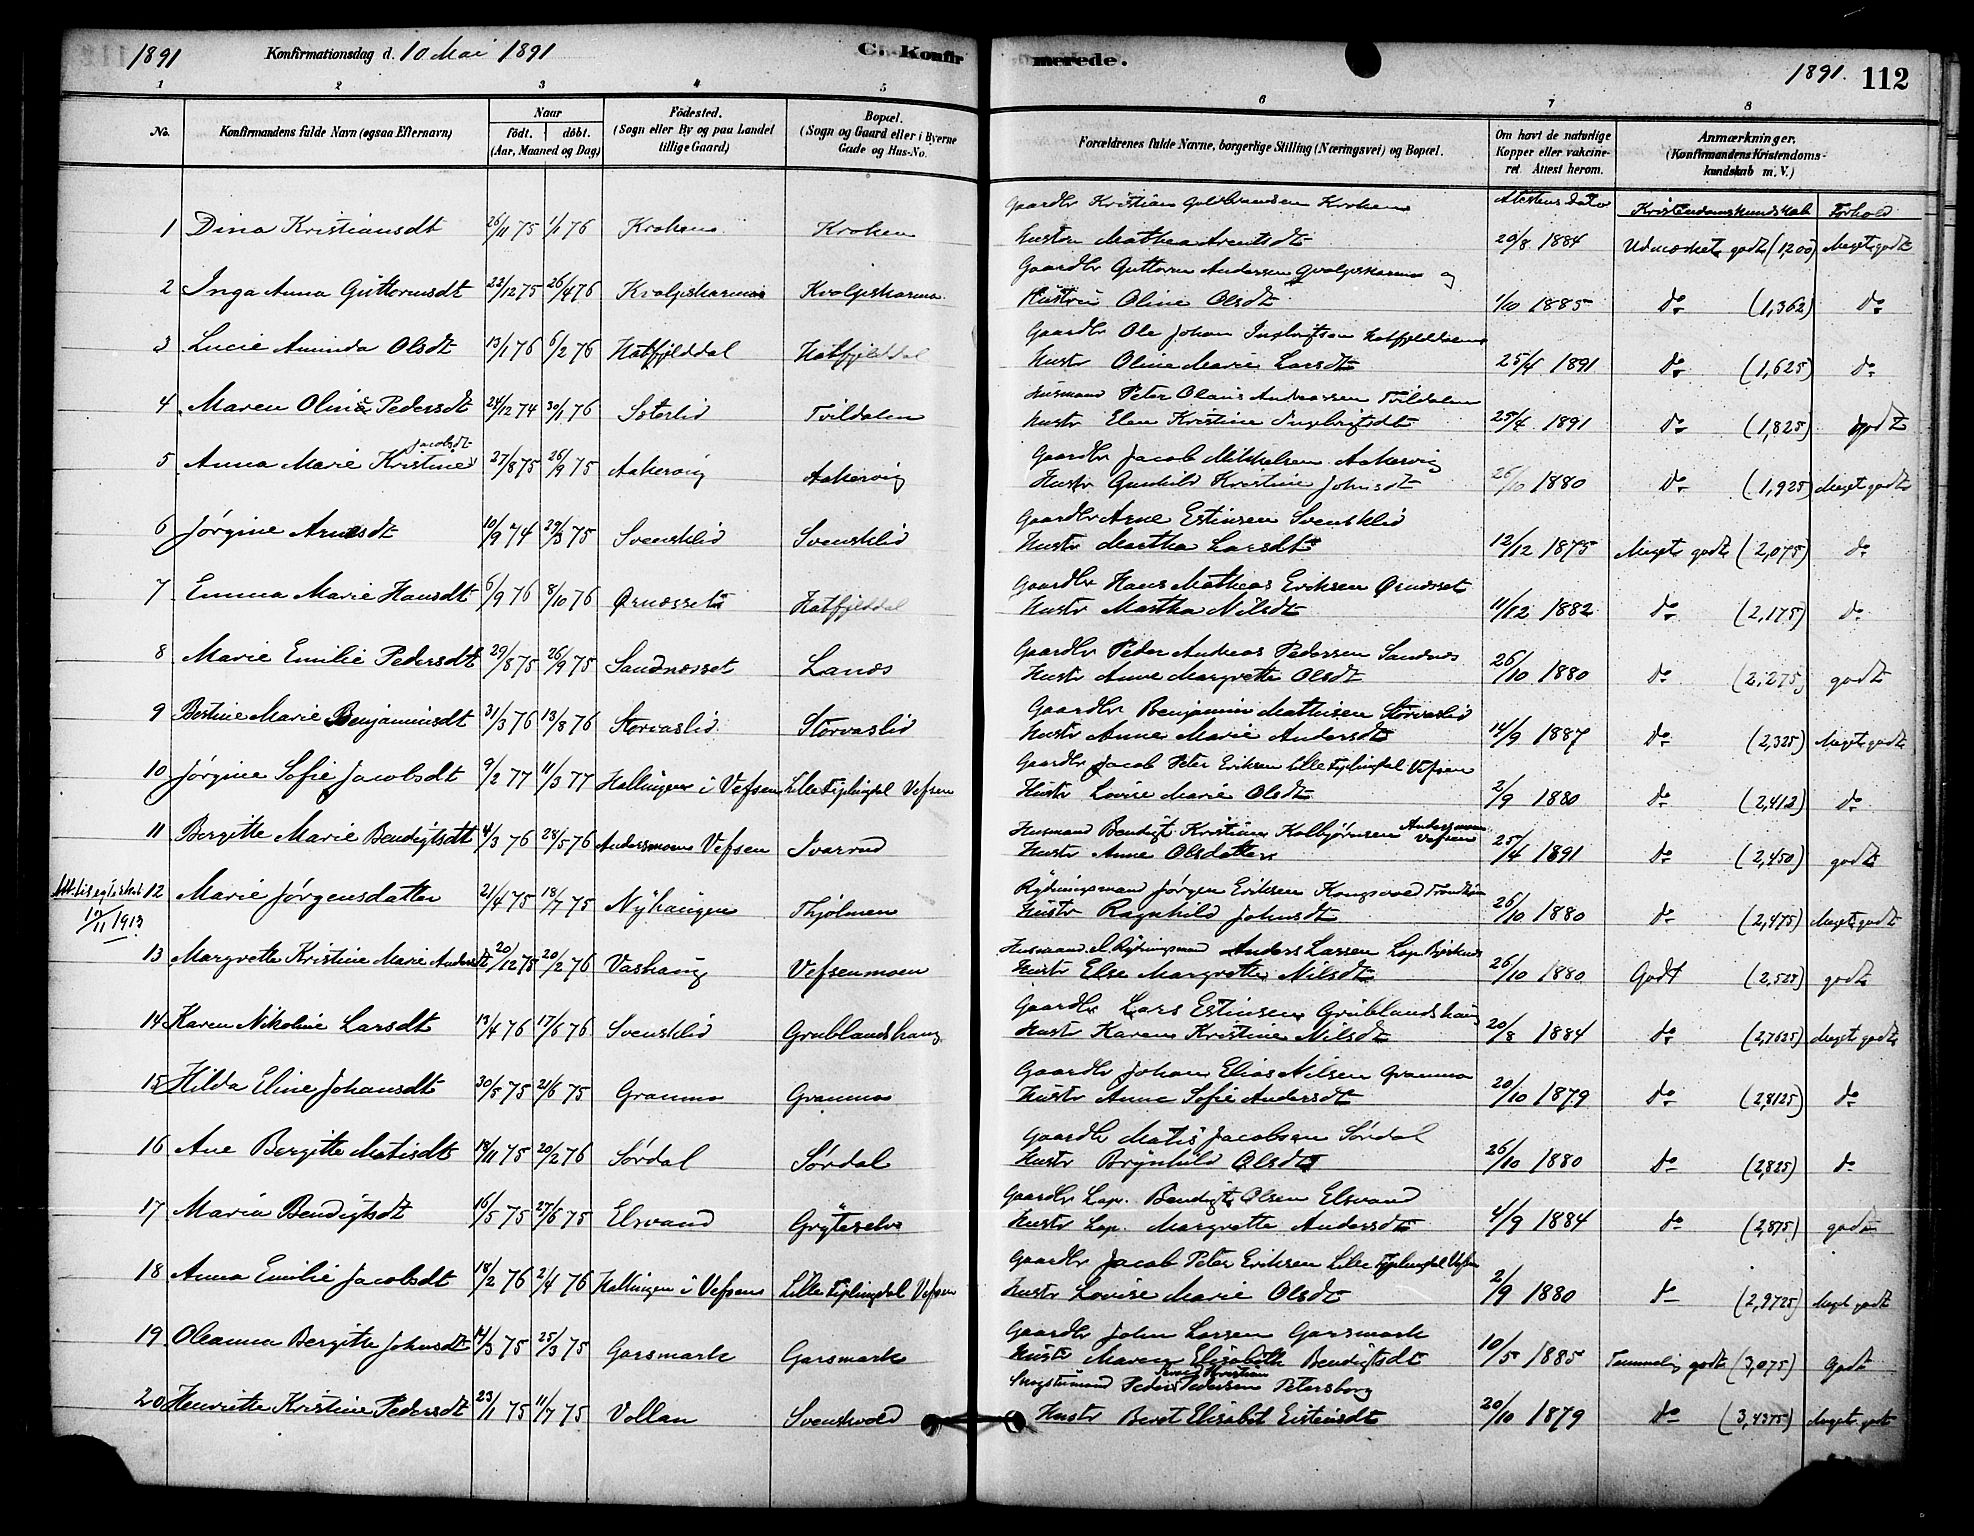 1891 Konfirmationsdag d. 10 Mai 1891 C. Konfirmerede. 1891. 112
1 2 3 4 5 6 7 8
No. Konfirmandens fulde Navn (ogsaa Efternavn) Naar født. døbt. (Aar, Maaned og Dag) Fødested. (Sogn eller By og paa Landet tillige Gaard) Bopæl. (Sogn og Gaard eller i Byerne Gade og Hus-No. Forældrenes fulde Navne, borgerlige Stilling (Næringsvei) og Bopæl. Om havt de naturlige Kopper eller vakcineret Attest herom. Anmærkninger. (Konfirmandens Kristendomskundskab m. V.)
Attestens Dato Kristendomskundskab Forhold
Gaardbr Kristian Kroken
1 Dina Kristiansdt 26/11 75 1/1 76 Kroken Kroken Hustru Mathea Arentsdt 20/8 1884 Udmærket godt (1,200) Meget godt
Gaardbr Guttorm Andersen og
2 Inga Anna Guttormsdt 22/12 75 26/4 76 Hustru Oline Olsdt 1/10 1885 do (1,362) do
Gaardbr Ole Johan Hatfjelddalen
3 Lucie Aminda Olsdt 13/1 76 6/2 76 Hatfjelddal Hatfjelddal Hustr Oline Marie Larsdt 25/4 1891 do (1,625) do
Husmand Peter Olaus Andreassen Tvildalen
4 Maren Oline Pedersdt 24/12 74 30/1 76 Tvildalen Hustr Elen Kristine Ingebrigtsdt 25/4 1891 do (1,825) godt
Gaardbr Jacob Mikkelsen Aakervig
5 Anna Marie Kristine Jacobsdt 27/8 75 26/9 75 Aakervig Aakervig Hustr Gunhild Kristine Johnsdt 26/10 1880 do (1,925) Meget godt
Gaardbr Arne Estensen Svensklid
6 Jørgine Arnesdt 10/9 74 29/3 75 Svensklid Svensklid Hustr Martha Larsdt 12/12 1875 Meget godt (2,075) do
Gaardbr Hans Mathias Eriksen Ørnæsset
7 Emma Marie Hansdt 6/9 76 8/10 76 Ørnæsset Hatfjelddal Hustr Martha Nilsdt 11/12 1882 do (2,175) do
Gaardbr Peder Andreas Pedersen Sandnes
8 Marie Emilie Pedersdt 29/8 75 26/9 75 Sandnesset Lanes Hustr Anne Margrethe Olsdt 26/10 1880 do (2,275) godt
Gaardbr Benjamin Mathisen Storvaslid
9 Bertine Marie Benjaminsdt 31/3 76 13/8 76 Storvaslid Storvaslid Hustr Anne Marie Andersdt 14/9 1887 do (2,325) Meget godt
Gaardbr Jacob Peter Eriksen Lille Fiplingdal Vefsen
10 Jørgine Sofie Jacobsdt 9/2 77 11/3 77 Hallingen i Vefsen Lille Fiplingdal Vefsen Hustr Lovise Marie Olsdt 2/9 1880 do (2,412) do
Husmand Bendigt Kristian Kolbjørnsen Andersmoen Vefsen
11 Bergitte Marie Bendigtsdt 4/3 76 28/5 76 Andersmoen Vefsen Ivarrud Hustr Anne Olsdatter 25/4 1891 do (2,450) godt
Rydningsmand Jørgen Eriksen Kongsvold
12 Marie Jørgensdatter 21/4 75 18/7 75 Nyhaugen Thjølmen Hustr Ragnhild Johnsdt 26/10 1880 do (2,475) Meget godt
10/11 1913
Husmand el. Rydningsmand Anders Larsen Lap
13 Margrethe Kristine Marie Andersdt 20/12 75 20/2 76 Vashaug Vefsenmoen Hustr Else Margrethe Nilsdt 26/10 1880 Godt (2,525) godt
Gaardbr Lars Estensen Grublandshaug
14 Karen Nikoline Larsdt 13/4 76 17/6 76 Svensklid Grublandshaug Hustr Karen Kristine Nilsdt 20/8 1884 do (2,7625) Meget godt
Gaardbr Johan Elias Nilsen Granmo
15 Hilda Eline Johansdt 30/5 75 21/6 75 Granmo Granmo Hustr Anne Sofie Andersdt 20/10 1879 do (2,8125) do
Gaardbr Matis Jacobsen Sørdal
16 Ane Bergitte Matisdt 18/11 75 20/2 76 Sørdal Sørdal Hustr Brynhild Olsdt 26/10 1880 do (2,825) do
Gaardbr Lap. Bendigt Olsen Elsvand
17 Maria Bendigtsdt 16/5 75 27/6 75 Elsvand Gryteselv Hustr Lap. Margrethe Andersdt 4/9 1884 do (2,875) godt
Gaardbr Jacob Peter Eriksen Lille Fiplingdal Vefsen
18 Anna Emilie Jacobsdt 18/2 76 2/4 76 Hallingen i Vefsen Lille Fiplingdal Vefsen Hustr Lovise Marie Olsdt 2/9 1880 do (2,9725) Meget godt
Gaardbr John Larsen Garsmark
19 Oleanna Bergitte Johnsdt 14/3 75 25/3 75 Garsmark Garsmark Hustr Maren Elisabeth Bendigtsdt 10/5 1885 Temmelig godt (3,075) Godt
Peder Kristian Pedersen Petersborg
20 Henriette Kristine Pedersdt 23/1 75 11/7 75 Vollan Svenskvold Hustr Beret Elisabet Eistensdt 20/10 1879 do (3,4375) Meget godt